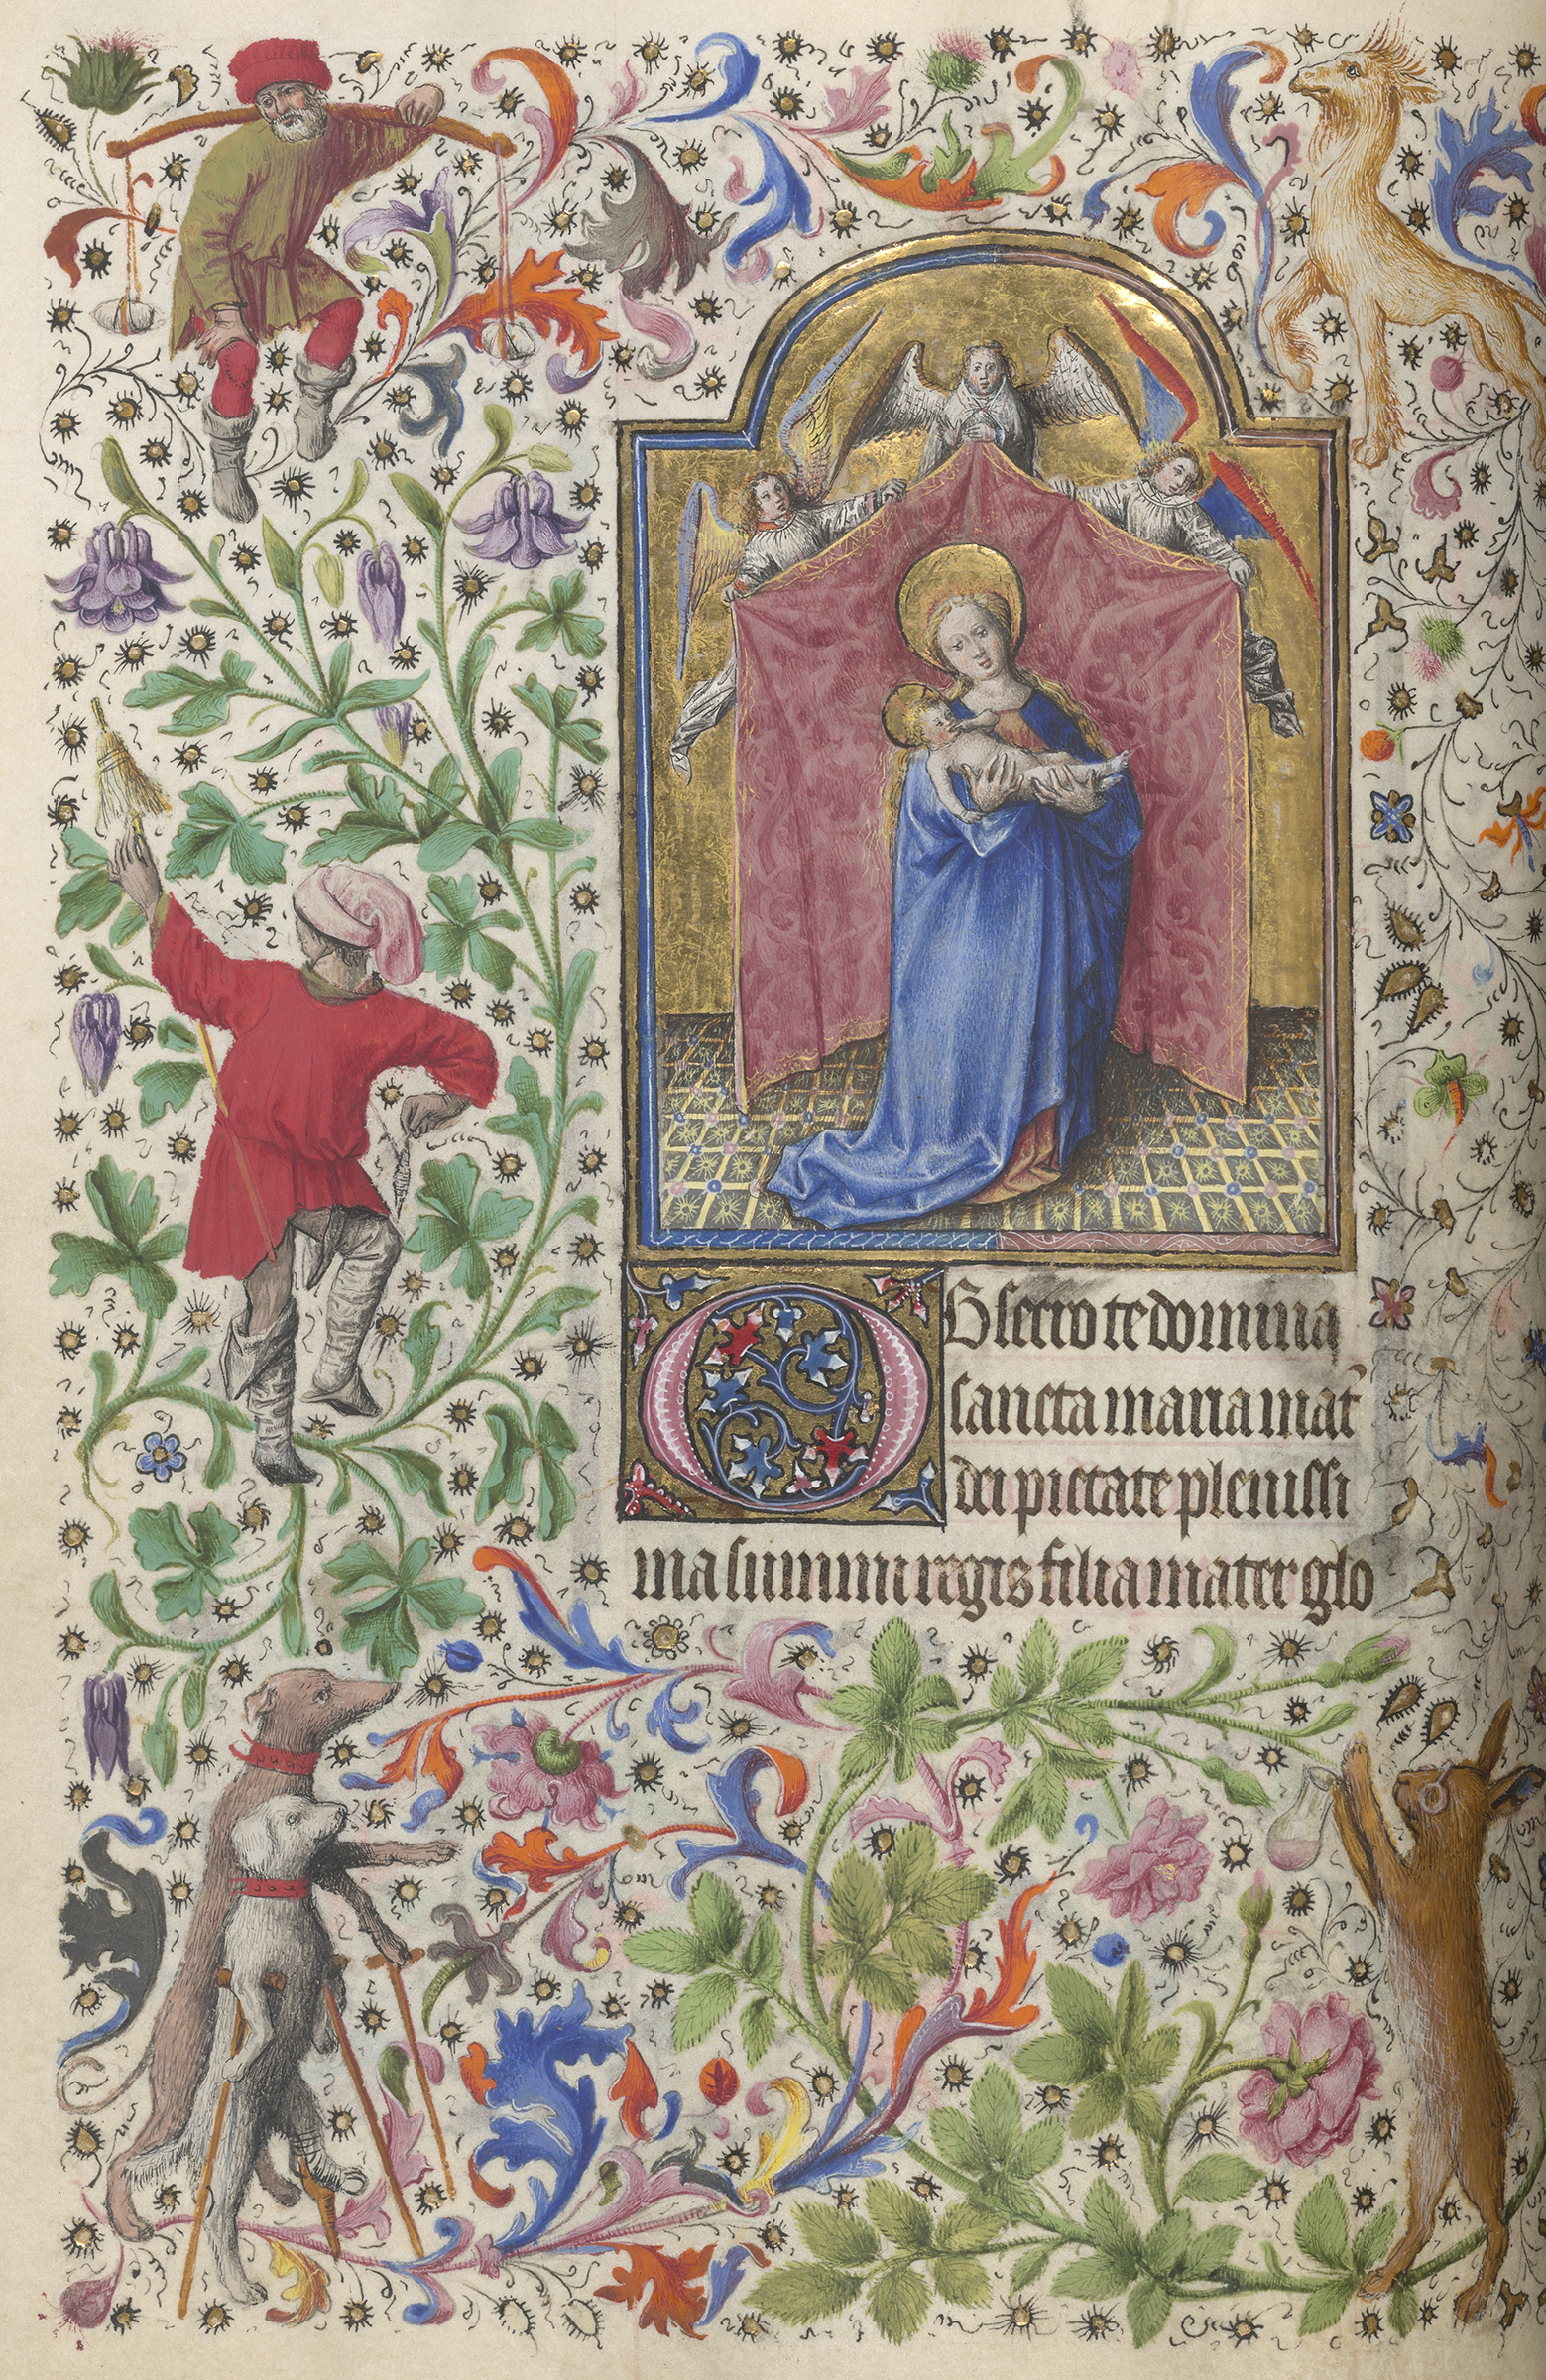 Obsecro te domina
sancta maria mat̉
dei pietate plenissi
ma summi regis filia mater glo